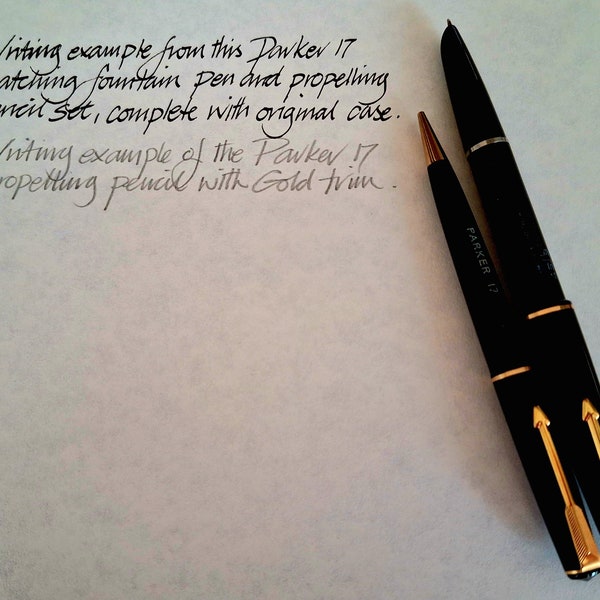 Writing example from this Parker 17
matching fountain pen and propelling
pencil set, complete with original case.
Writing example of the Parker 17
propelling pencil with Gold trim.
PARKER 17